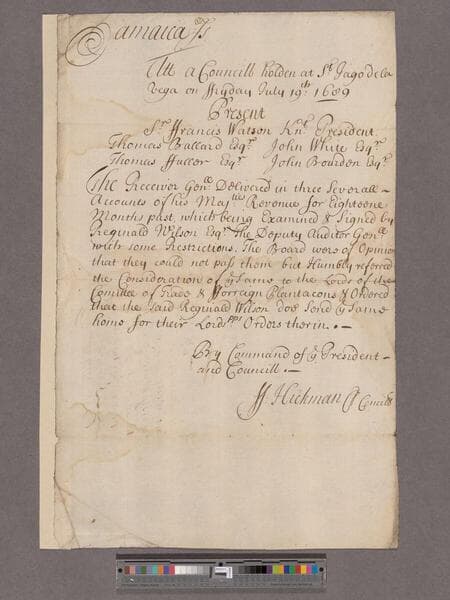 Jamaica Ss
Att a Councill holden at St Jago de la
Vega on Ffryday July 19th 1689
Present
Sr Ffrancis Watson Knt President
Thomas Ballard Esqr John White Esqr
Thomas Ffuller Esqr John Bourden Esqr
The Receiver Genll Delivered in three Severall
Accounts of his Matys Revenue for Eighteene
Months past, which being Examined & Signed by
Reginald Wilson Esqr The Deputy Auditor Genll
with some Restrictions. The Board were of Opinion
that they could not pass them but Humbly referred
the Consideration of ye Same to the Lords of the
Comittee of Trade & Fforreign Plantacons & Ordered
that the Said Reginald Wilson doe Send ye Same
home for their Lordpps Orders therin. –
By Command of ye President
and Councill. –
Ff Hickman Cl Concill